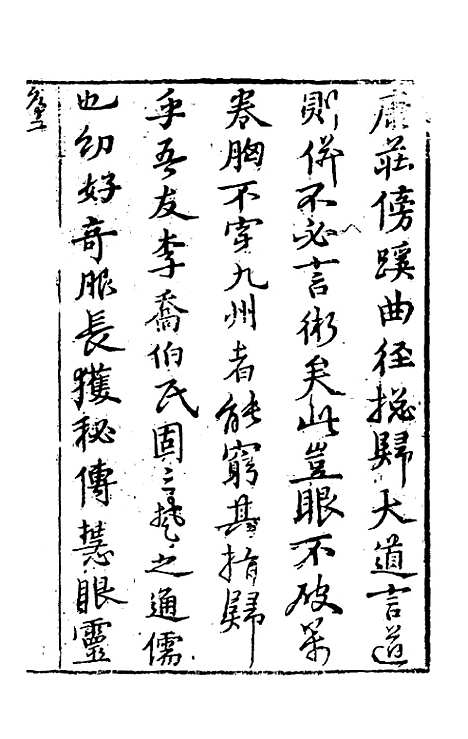 康莊傍蹊曲徑揔歸大道言道
則併不必言術矣此豈眼不破萬
卷胸不穿九州者能窮其指歸
乎吾友李喬伯氏固三藝之通儒
也幼好奇服長獲秘傳慧眼靈